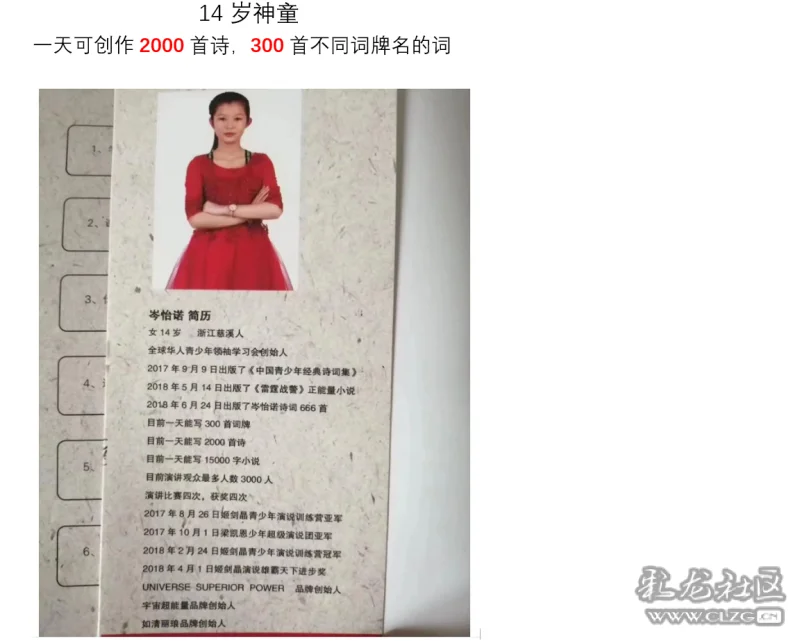 14 岁神童
一天可创作 2000 首诗，300 首不同词牌名的词
1、
2、
3、
4、
5、
6、
岑怡诺 简历
女 14 岁 浙江慈溪人
全球华人青少年领袖学习会创始人
2017 年 9 月 9 日出版了《中国青少年经典诗词集》
2018 年 5 月 14 日出版了《雷霆战警》正能量小说
2018 年 6 月 24 日出版了岑怡诺诗词 666 首
目前一天能写 300 首词牌
目前一天能写 2000 首诗
目前一天能写 15000 字小说
目前演讲观众最多人数 3000 人
演讲比赛四次，获奖四次
2017 年 8 月 26 日姬剑晶青少年演说训练营亚军
2017 年 10 月 1 日梁凯恩少年超级演说团亚军
2018 年 2 月 24 日姬剑晶青少年演说训练营冠军
2018 年 4 月 1 日姬剑晶演说雄霸天下进步奖
UNIVERSE SUPERIOR POWER 品牌创始人
宇宙超能量品牌创始人
如清丽琅品牌创始人
龙社区
WWW.CLZG.CN